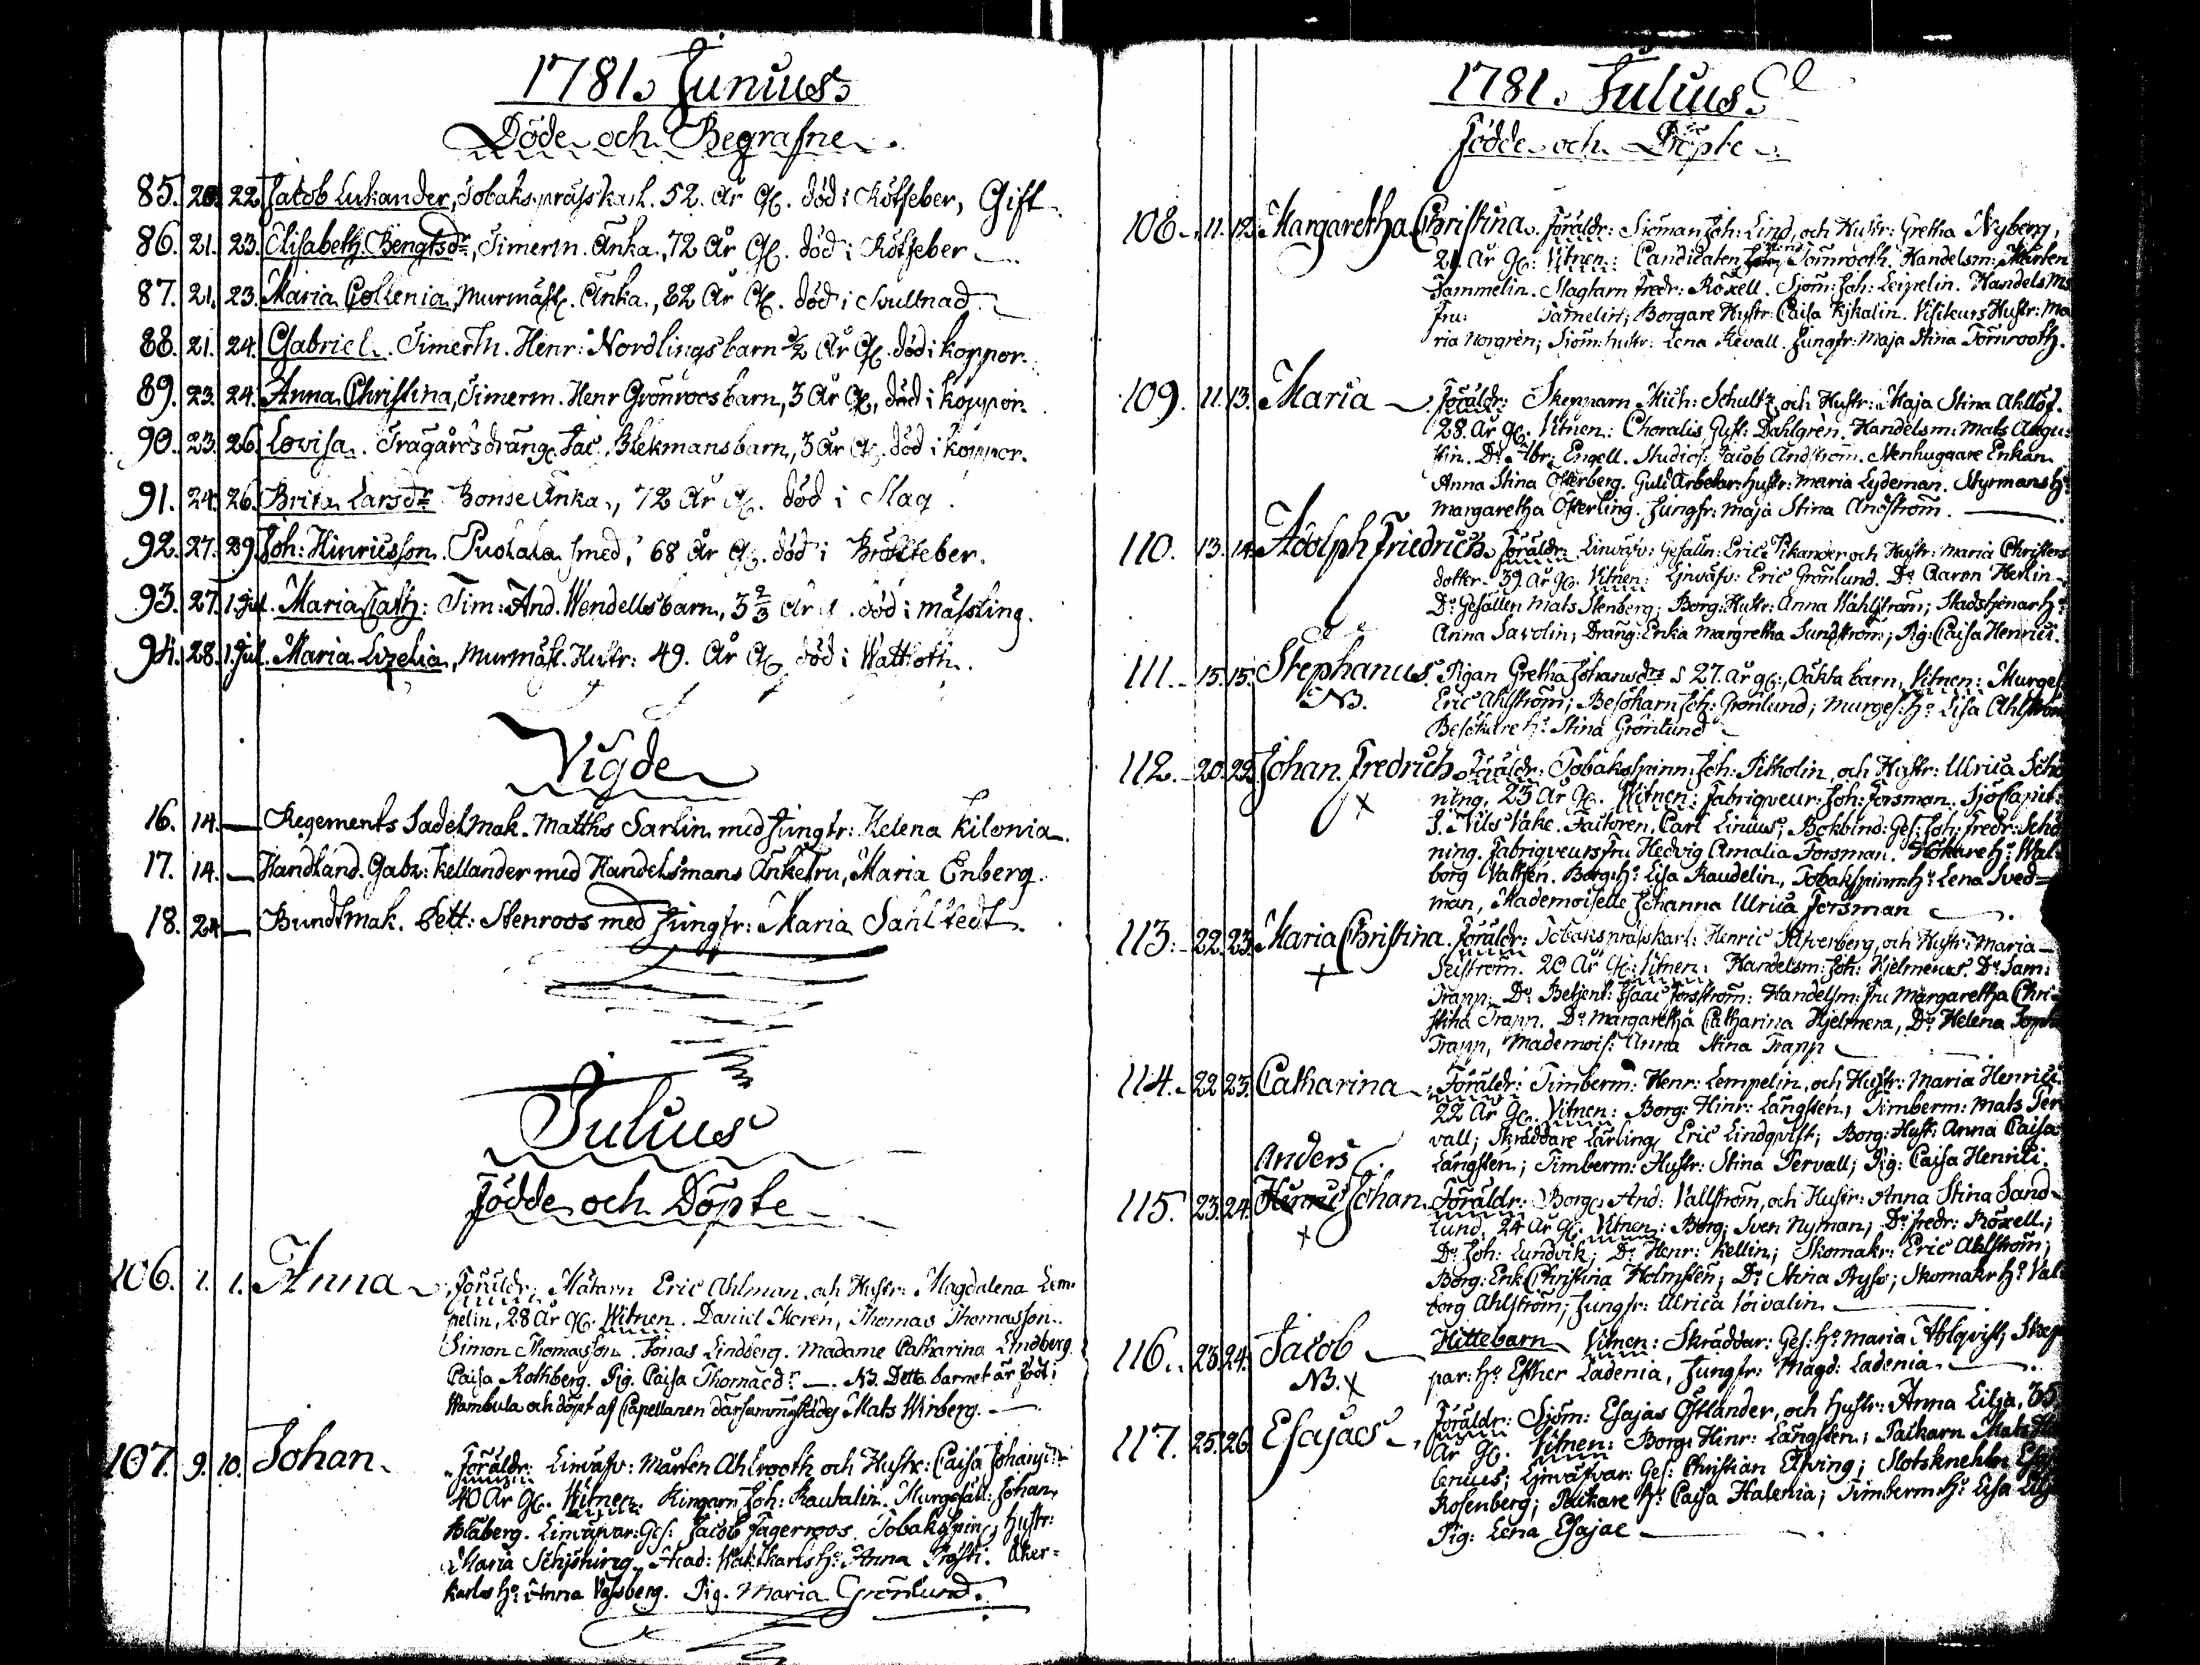 1781. Junius.
Döde och Begrafne.
85. 20. 22. Jacob Lukander, Tobaks prässkarl. 52. år gl. död i Rötfeber, Gift.
86. 21. 23. Elisabeth Bengtsdr, Timerm. Änka, 72 år gl. död i Rötfeber
87. 21. 23. Maria Collenia Murmäst. Änka, 82 år gl. död i Svullnad.
88. 21. 24. Gabriel. Timerm. Henr: Nordlings barn ½ år gl. död i koppor.
89. 23. 24. Anna Christina, Timerm. Henr Grönroos barn, 3 år gl, död i koppor.
90. 23. 26. Lovisa. Trägårdsdräng Jac. Blekmans barn, 3 år gl. död i koppor.
91. 24. 26. Brita Larsdr Bonse Änka, 72 år gl. död i Slag.
92. 27. 29. Joh: Hinricsson. Puolala smed, 68 år gl. död i Bröstfeber.
93. 27. 1. Jul. Maria Cath: Tim: And. Wendells barn, 3 2/3 år gl. död i mässling.
94. 28. 1. Jul. Maria Lizelia, Murmäst. Hustr: 49. år gl. död i Wattsoth.
Vigde
16. 14. — Regements Sadelmak. Matths Sarlin med Jungfr: Helena Kilonia.
17. 14. — Handland. Gabr: Kellander med Handelsmans Änkefru, Maria Enberg.
18. 24 — Bundtmak. Pett: Stenroos med Jungfr: Maria Sahlstedt.
Julius
Födde och Döpte
106. 1. 1. Anna Föräldr: Mätarn Eric Ahlman och Hustr: Magdalena Lem-
pelin, 28 år gl. Witnen. Daniel Moren, Thomas Thomasson.
Simon Thomasson. Jonas Lindberg. Madame Catharina Lindberg.
Caisa Rothberg. Pig. Caisa Thomaedr —. NB. Detta barnet är född i
Wambula och döpt af Capellanen därsammastädes Mats Wirberg.
107. 9. 10. Johan. Föräldr: Linväfv: Mårten Ahlrooth och Hustr: Caisa Johansdr
40 år gl. Witnen. Ringarn Joh: Rautalin. Murgesäll: Johan
Blåberg. Linväfvar: Ges: Jacob Fagerroos. Tobakspin: Hustr:
Maria Schjöning. Acad: Waktkarls Hu Anna Frosti. Åker-
karls Hu Anna Vassberg. Pig. Maria Grönlund.
1781. Julius.
Födde och Döpte
108. 11. 12. Margaretha Christina. Föräldr: Siöman Joh: Lind, och Hustr: Gretha Nyberg,
21. år gl: Vitnen: Candidaten Törnrooth. Handelsm: Mårten
Tammelin. Slagtarn Fredr: Roxell. Sjöm: Joh: Leipelin. Handelsms
Fru: Tamelin; Borgare Hustr: Caisa Kjkalin. Visiteurs Hustr: Ma
ria Norgren; Siöm: hustr: Lena Revall. Jungfr: Maja Stina Törnrooth.
109. 11. 13. Maria Föräldr: Skepparn Mich: Schultz och Hustr: Maja Stina Ahllöf.
28. år gl. Vitnen: Choralis Gust: Dahlgren. Handelsm: Mats Augu-
stin. Do Abr: Engell. Studios: Jacob Andström. Stenhuggare Enkan
Anna Stina Österberg. Guld Arbetar: Hustr: Maria Lydeman. Styrmans Hu
Margaretha Österling. Jungfr: Maja Stina Andström.
110. 13. 14. Adolph Friedrich Föräldr: Linväfv: Gesälln: Eric Pikander och Hustr: Maria Christers
dotter 39 år gl. Vitnen: Linväfv: Eric Grönlund. Do Aaron Herlin
Do Gesällen Mats Stenberg; Borg: Hustr: Anna Wahlström; Stadstjenar Hu
Anna Savolin; Dräng: Enka Margretha Sundström; Pig: Caisa Henrici.
111. 15. 15. Stephanus. Pigan Gretha Johansdrs 27. år gl:, Oäkta barn. Vitnen: Murges
NB. Eric Ahlström; Besökarn Joh: Grönlund; Murges: Hu Lisa Ahlström
Besökare Hu Stina Grönlund
112. 20. 22. Johan Fredrich Föräldr: Tobakspinn: Joh: Piskolin, och Hustr: Ulrica Schö
x ning, 23 år gl. Witnen: Fabriqveur: Joh: Forsman. Sjö Capit:
J. Nils Vake. Factoren, Carl Linnus; Bokbind: Ges: Joh: Fredr: Schö
ning. Fabriqveurs Fru Hedvig Amalia Forsman. Hökare Hu Wal-
borg Valsten. Borg: Hu Lisa Raudelin, Tobakspinn: Hu Lena Sved=
man, Mademoiselle Johanna Ulrica Forsman
113. 22. 23. Maria Christina. Föräldr: Tobaksprässkarl: Henric Silfverberg, och Hustr: Maria
+ Seiström. 20 år gl: Vitnen: Handelsm: Joh: Hjelmerus. Do Sam:
Trapp; Do Betjent: Isaac Forsström: Handelsm: Fru Margaretha Chri-
stina Trapp. Do Margaretha Catharina Hjelmera, Do Helena Soph
Trapp, Mademois: Anna Stina Trapp
114. 22 23. Catharina Föräldr: Timberm: Henr: Lempelin, och Hustr: Maria Henrici
22 år gl. Vitnen: Borg: Hinr: Långsten; Timberm: Mats Ter
vall; Skräddare Lärling Eric Lindqvist; Borg: Hust: Anna Caisa
Långsten; Timberm: Hustr: Stina Tervall; Pig: Caisa Henrici.
Anders
115. 23. 24. Johan Föräldr: Borg: And: Vallström, och Hustr: Anna Stina Sand-
x lund. 24 år gl. Vitnen: Borg: Sven Nyman; Do Fredr: Roxell;
Do Joh: Lundvik; Do Henr: Kellin; Skomakr: Eric Ahlström;
Borg: Enk Christina Holmsten; Do Stina Ryss; Skomakr Hu Val
borg Ahlström; Jungfr: Ulrica Loivalin
116. 23. 24. Jacob Hittebarn Vitnen: Skräddar: Ges: Hu Maria Ahlqvist; Skep
NB. x par: Hu Esther Ladenia, Jungfr: Magd: Ladenia.
117. 25. 26. Esajas Föräldr: Sjöm: Esajas Östlander, och Hustr: Anna Lilja, 35
år gl. Vitnen: Borg: Hinr: Långsten; Packarn Mats
lenius; Linväfvar: Ges: Christian Elfving; Slotsknekten
Rosenberg; Packare Hu Caisa Halenia; Timberm: Hu Lisa
Pig: Lena Esajae